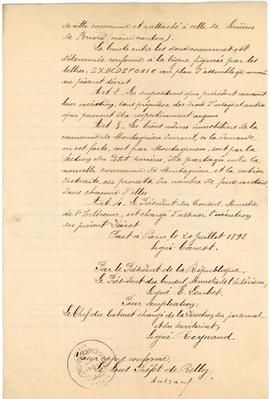 de cette commune et rattaché à celle de Serrières
de Briord, même canton).
La limite entre les deux communes est
déterminée conformément à la ligne figurée par les
lettres, Z X B C D E F O S I K au plan d'assemblage annexé
au présent décret
Art 2. Les dispositions qui précèdent auront
lieu sans préjudice des droits d'usage et autres
qui peuvent être respectivement acquis
Art 3. Les biens meubles immobiliers de la
commune de Montagnieu seront, si la demande
en est faite, soit par Montagnieu, soit par la
section du Petit Serrières partagés entre la
nouvelle commune de Montagnieu et la section
distraite, au prorata du nombre de feux existant
dans chacune d'elles
Art 4. Le Président du Conseil, Ministre
de l'Intérieur, est chargé d'assurer l'exécution
du présent Décret
Fait à Paris le 20 juillet 1892
Signé Carnot.
Par le Président de la République,
Le Président du Conseil Ministre de l'Intérieur,
Signé E. Loubet.
Pour ampliation:
Le Chef du Cabinet chargé de la Direction du personnel
et du Secrétariat,
Signé Reynaud.
Pour copie conforme
Le Sous Préfet de Belley